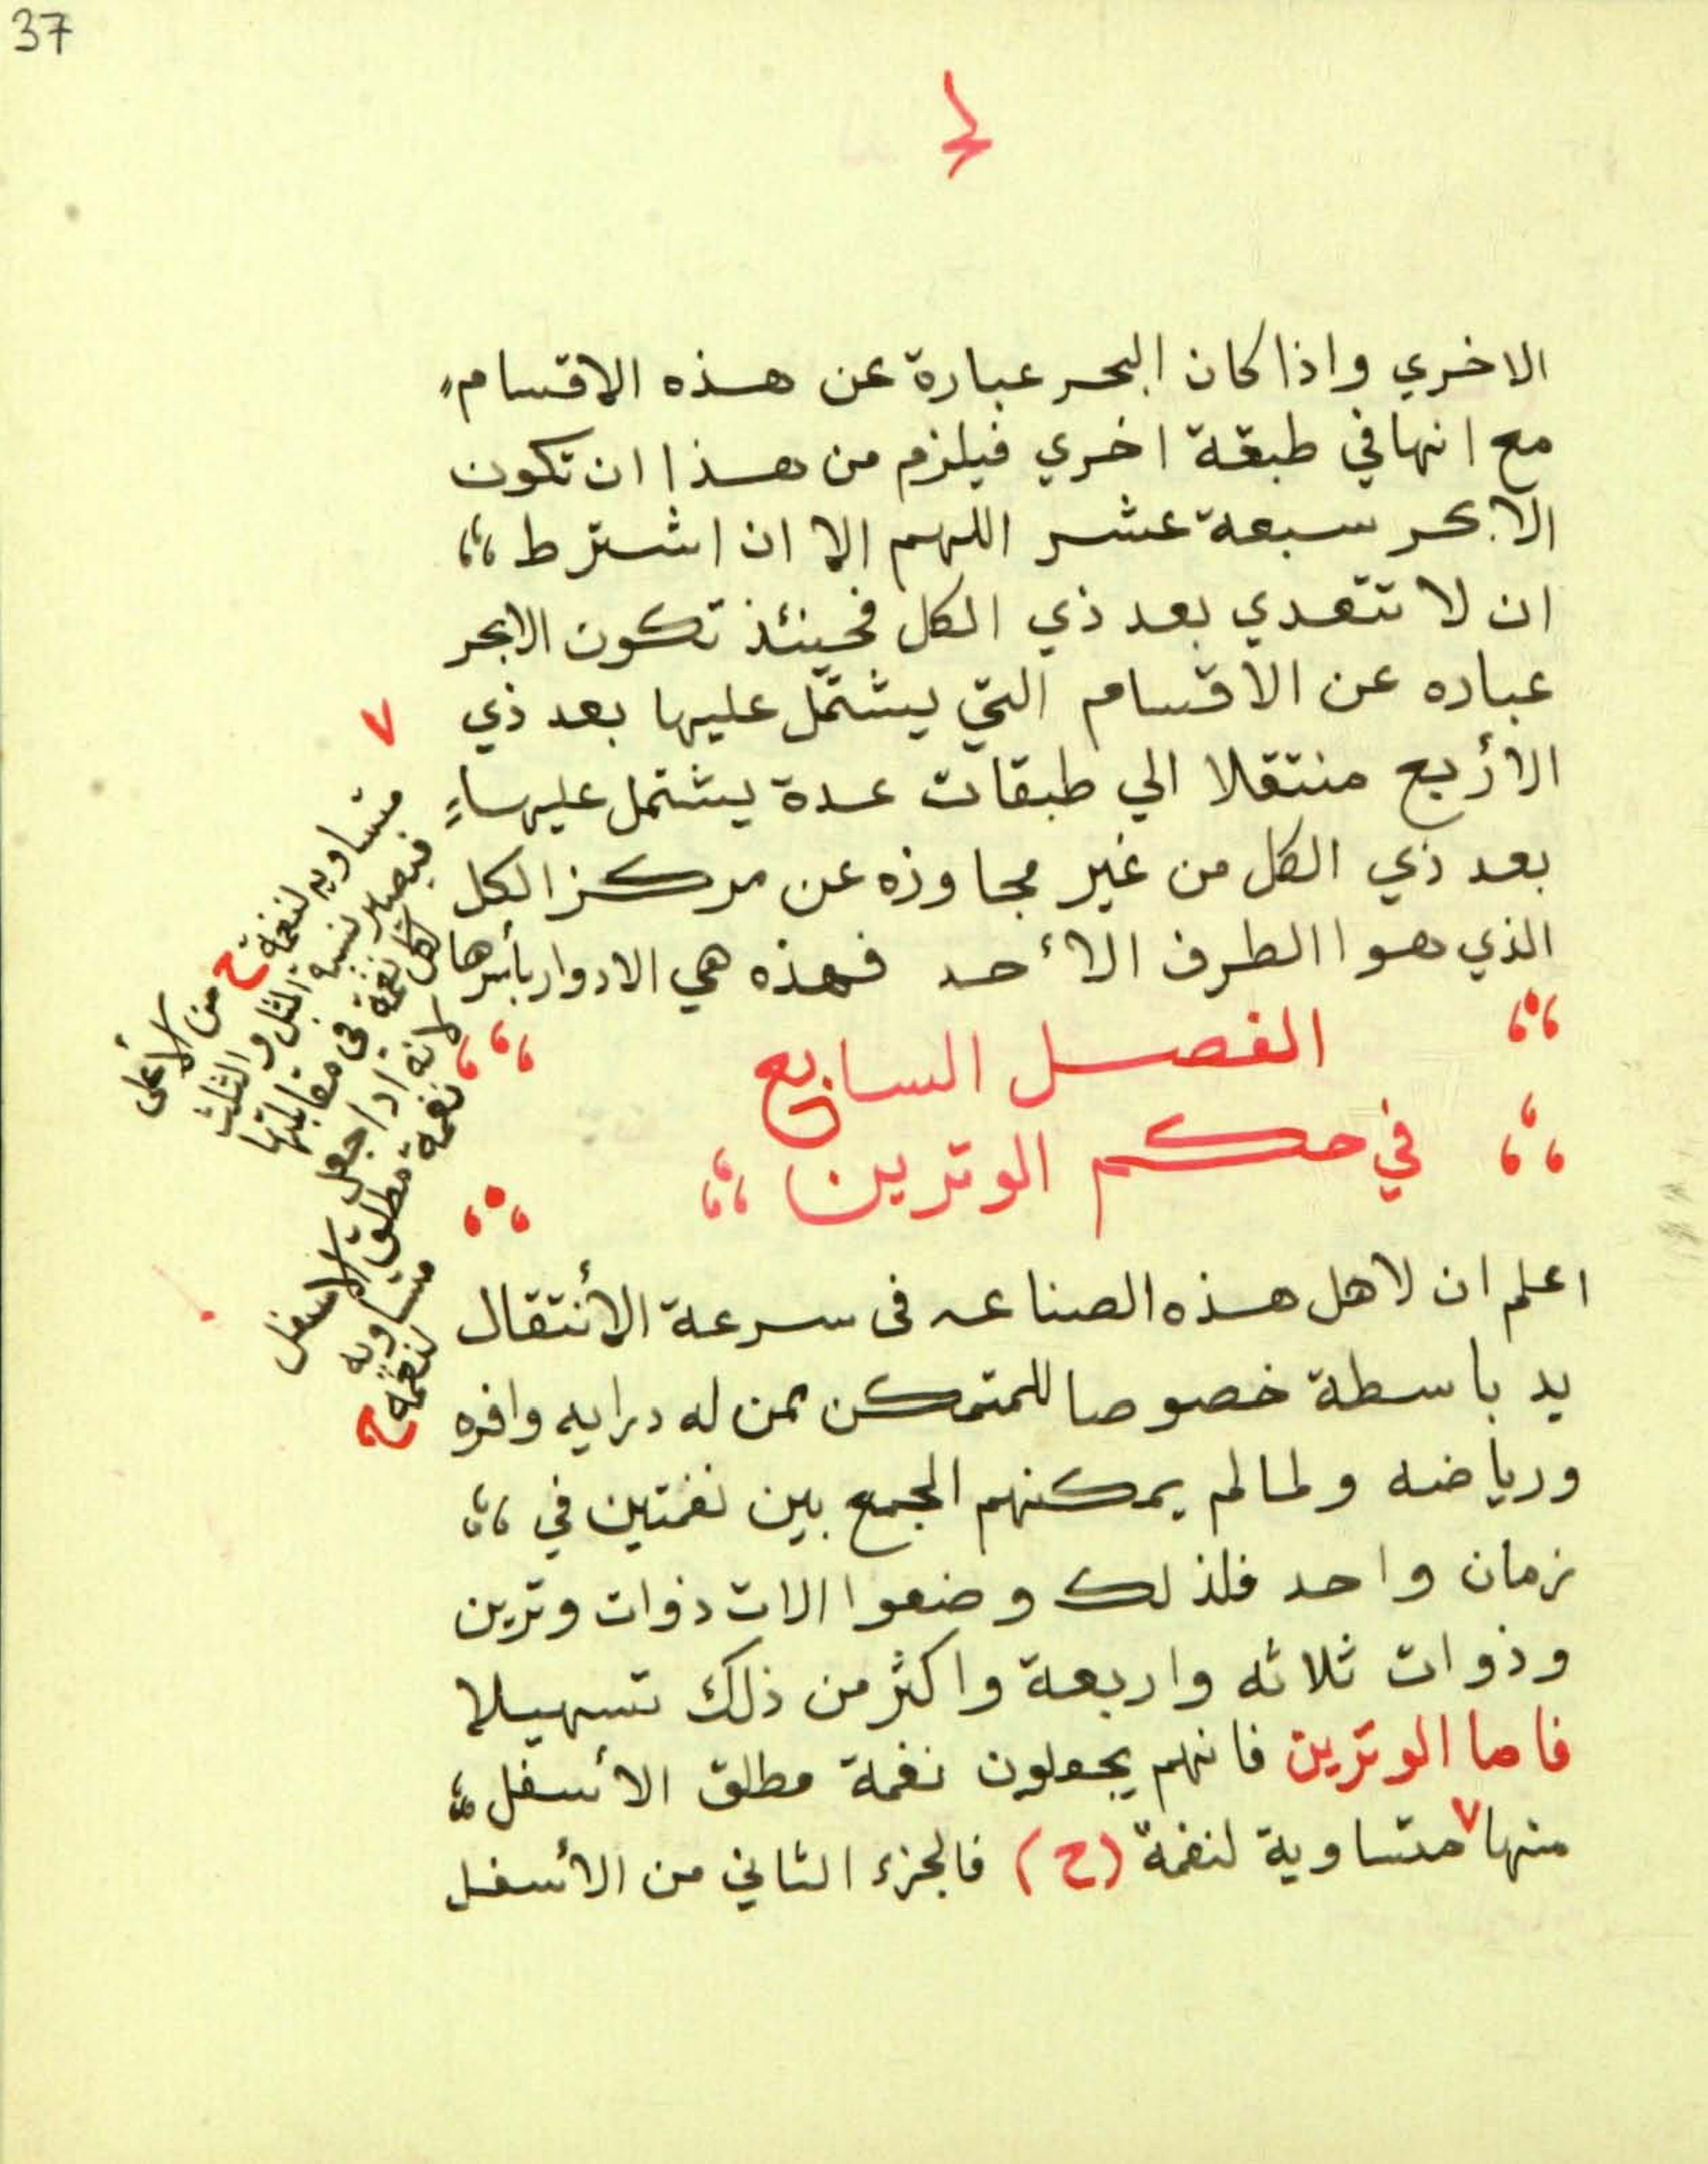 37
الاخري واذا كان البحر عبارة عن هذه الاقسام
مع انها في طبقة اخري فيلزم من هذا ان تكون
الابحر سبعة عشر اللهم الا ان اشترط
ان لا تتعدي بعد ذي الكل فحينئذ تكون الابحر
عباره عن الاقسام التي يشتمل عليها بعد ذي
الأربع منتقلا الي طبقات عدة يشتمل عليها
بعد ذي الكل من غير مجاوزه عن مركز الكل
الذي هوا الطرف الأحد فهذه هي الادوار بأسرها
الفصل السابع
في حكم الوترين
اعلم ان لاهل هذه الصناعه فى سرعة الأنتقال
يد باسطة خصوصا للمتمكن ممن له درايه وافره
ورياضه ولما لم يمكنهم الجمع بين نغمتين في
زمان واحد فلذلك وضعوا الات ذوات وترين
وذوات ثلاثه واربعة واكثر من ذلك تسهيلا
فاما الوترين فانهم يجعلون نغمة مطلق الأسفل
منها ٧ متساوية لنغمة (ح) فالجزء الثاني من الأسفل
٧
متساويه لنغمة ح من الأعلى
فيصير نسبه المثل والثلث
لكل نغمة في مقابلتها
لانه اذا جعل
نغمة مطلق الاسفل
متساويه
لنغمة ح